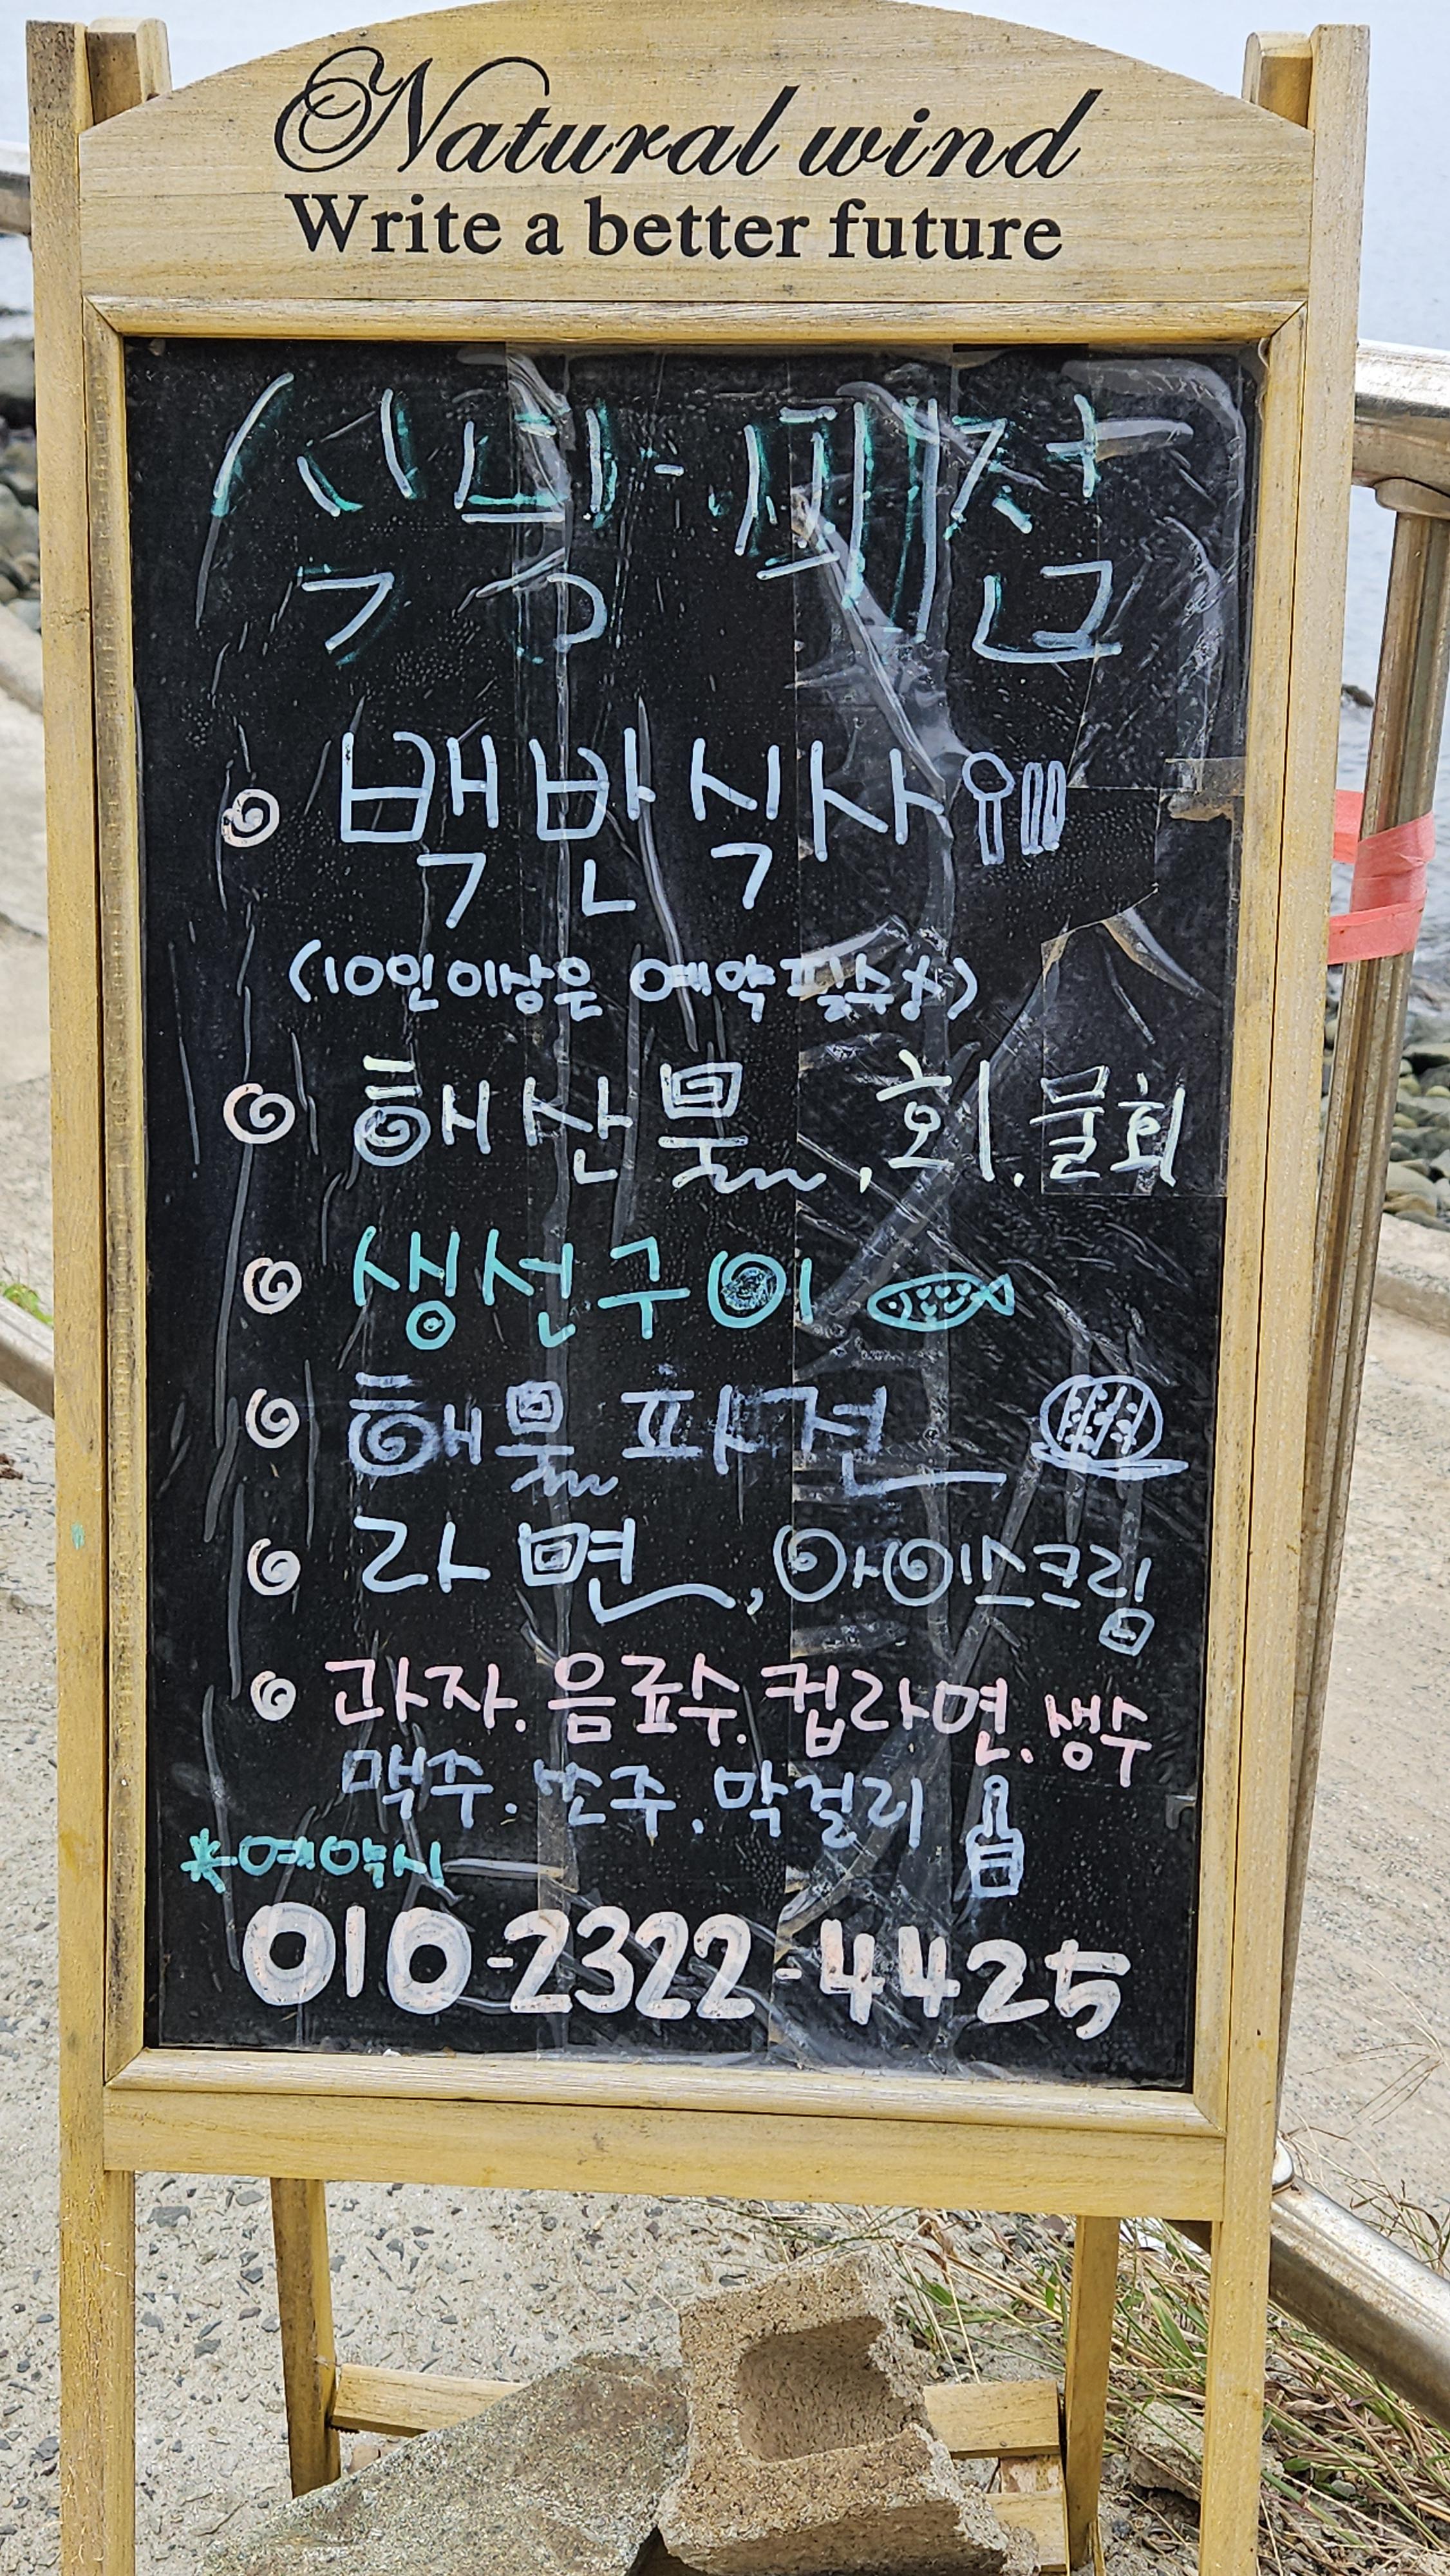 Natural wind
Write a better future
식당·매점
백반식사
(10인이상은 예약필수)
해산물, 회. 물회
생선구이
해물파전
라면, 아이스크림
과자. 음료수. 컵라면. 생수
맥주. 소주. 막걸리
*예약시
010-2322-4425